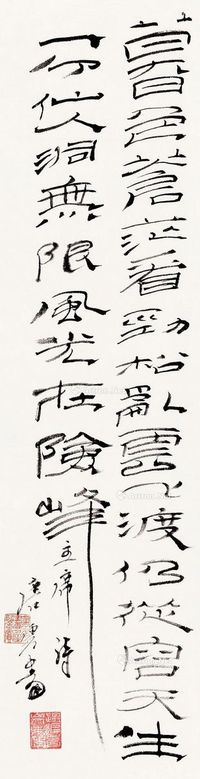 暮色蒼茫看勁松亂雲飞渡仍從容天生
一个仙人洞無限風光在險峰
主席詩